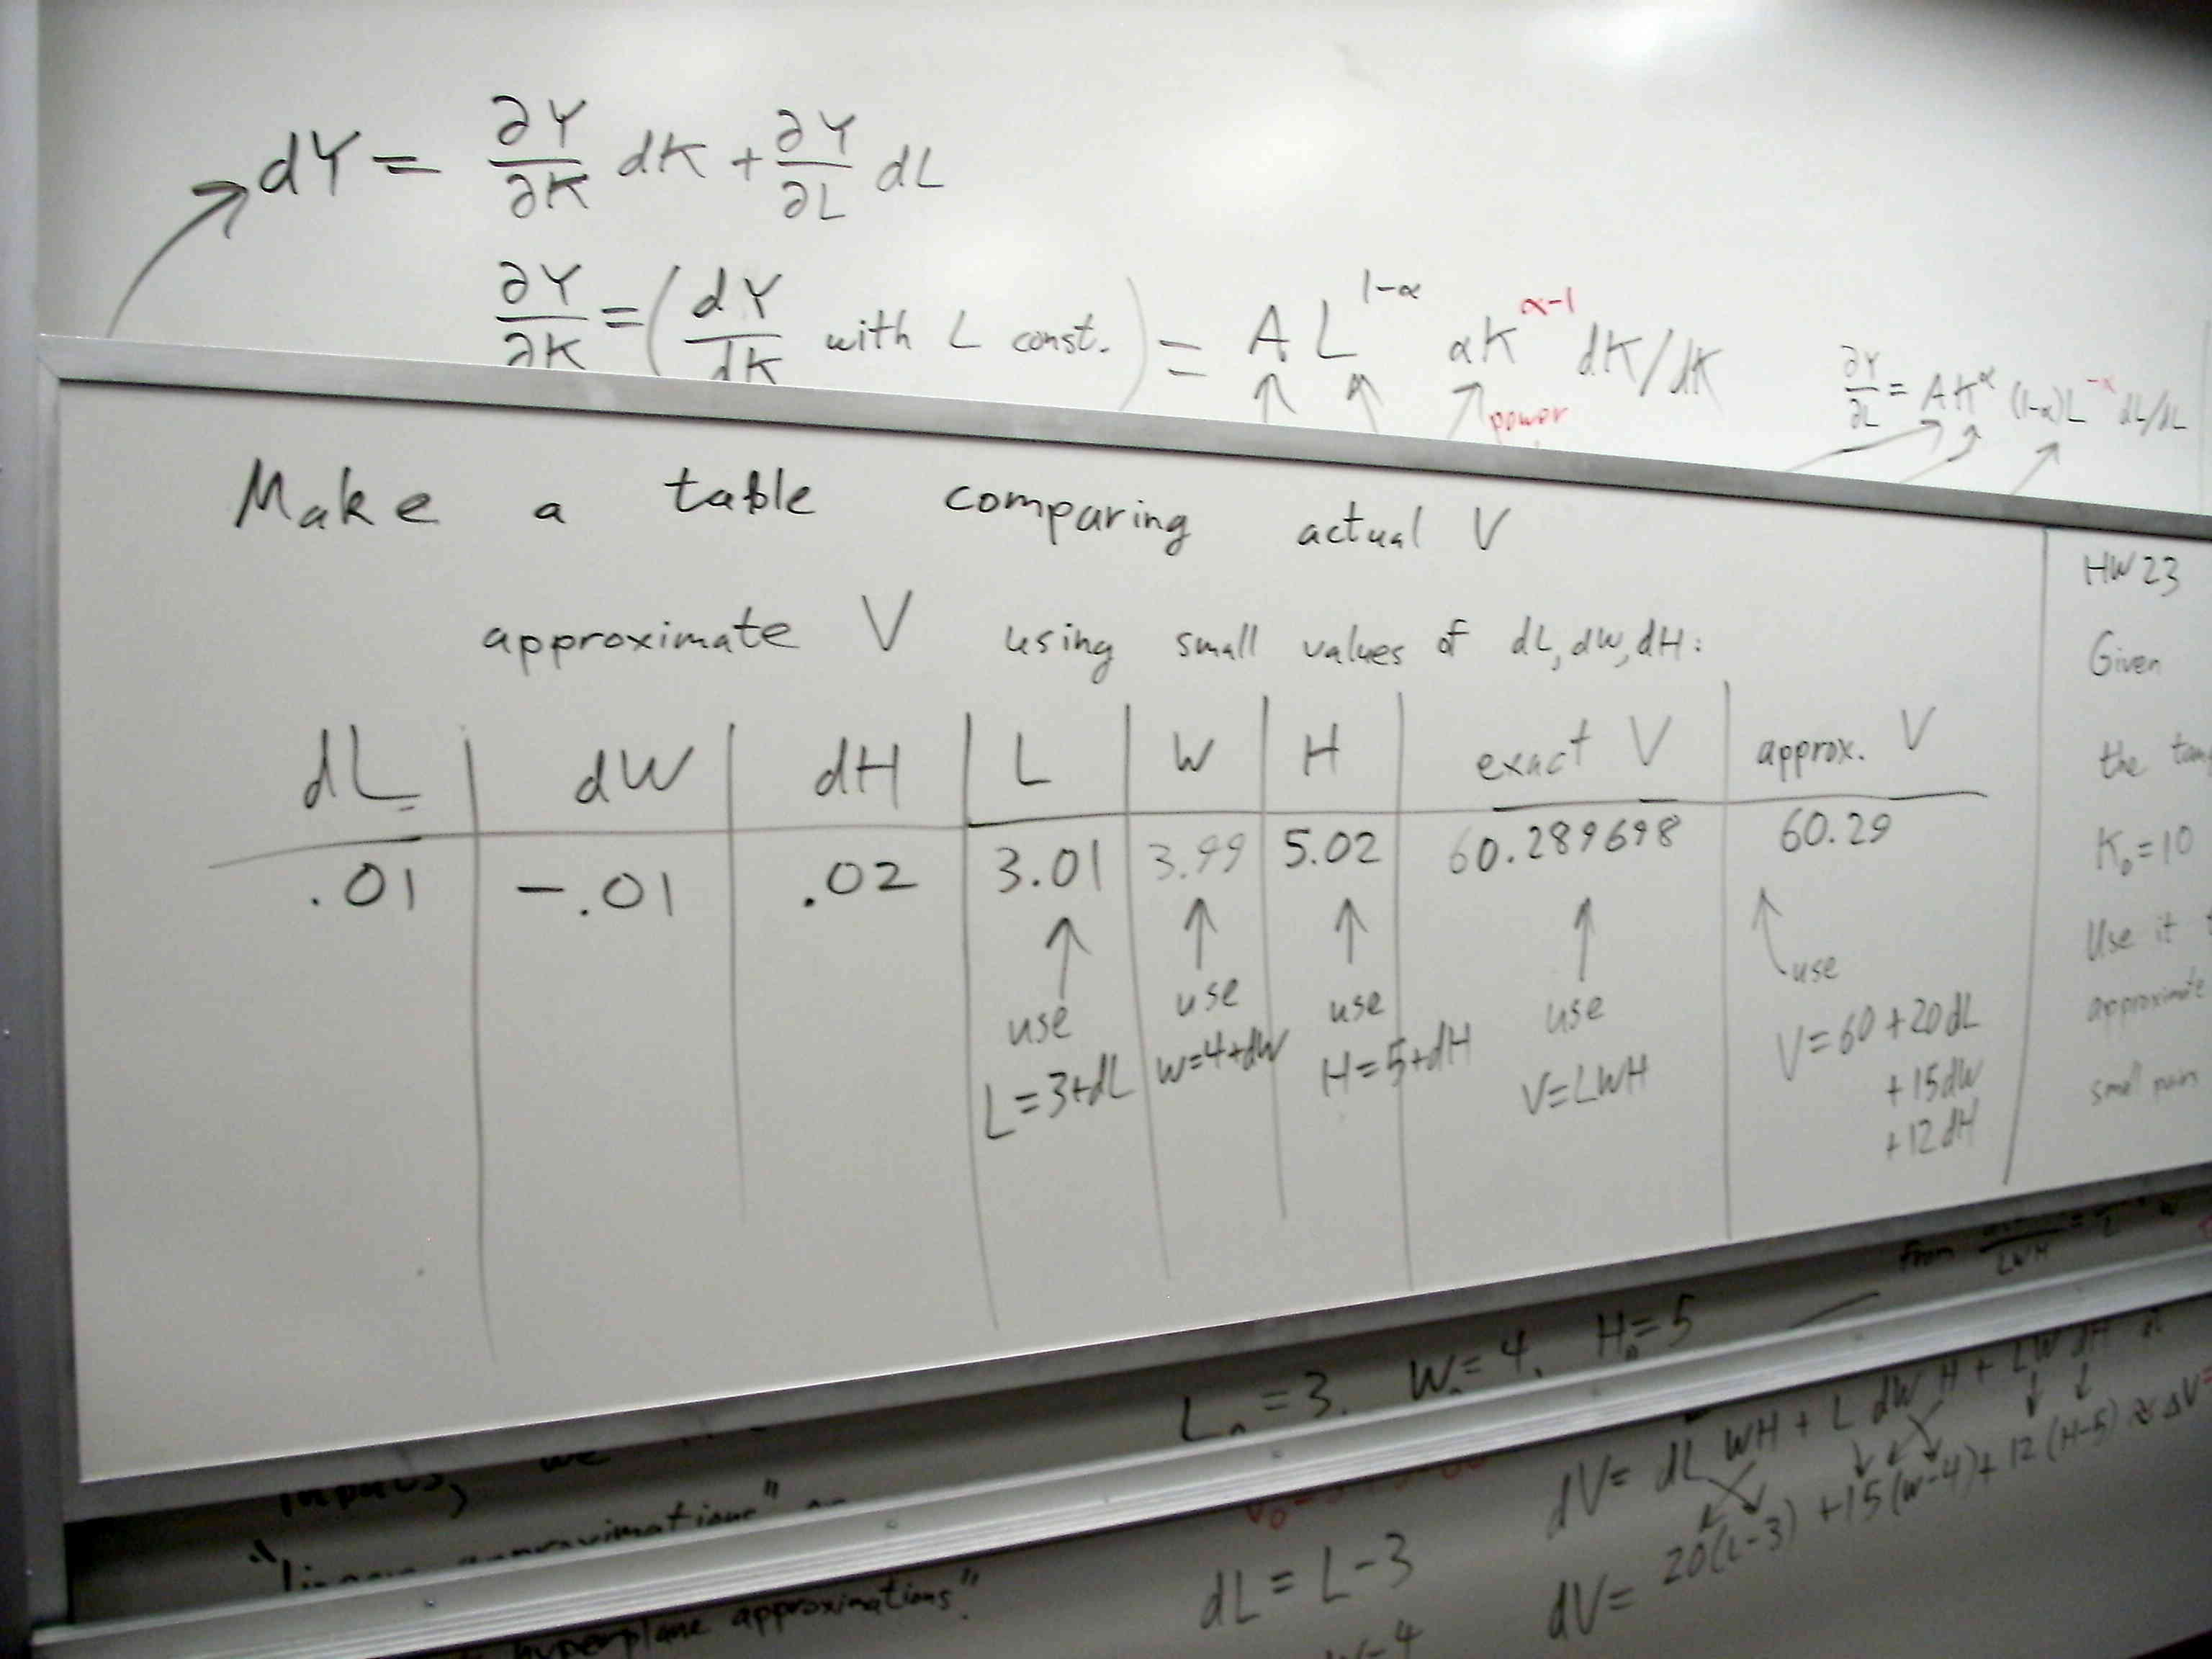 dY = ∂Y/∂K dK + ∂Y/∂L dL
∂Y/∂K = (dY/dK with L const.) = A L^(1-α) αK^(α-1) dK/dK
power
∂Y/∂L = AK^α (1-α)L^(-α) dL/dL
Make a table comparing actual V
approximate V using small values of dL, dW, dH:
dL | dW | dH | L | W | H | exact V | approx. V
.01 | -.01 | .02 | 3.01 | 3.99 | 5.02 | 60.289698 | 60.29
use L=3+dL
use W=4+dW
use H=5+dH
use V=LWH
use V=60+20dL
+15dW
+12dH
HW 23
Given
the
K₀=10
Use it
approximate
small
from
LWH
L₀=3, W₀=4, H₀=5
dV= dL WH + L dW H + LW dH
dL = L-3
dV= 20(L-3) +15(W-4)+ 12(H-5) ≈ ΔV=
W-4
inputs, we
"linear approximations"
hyperplane approximations".